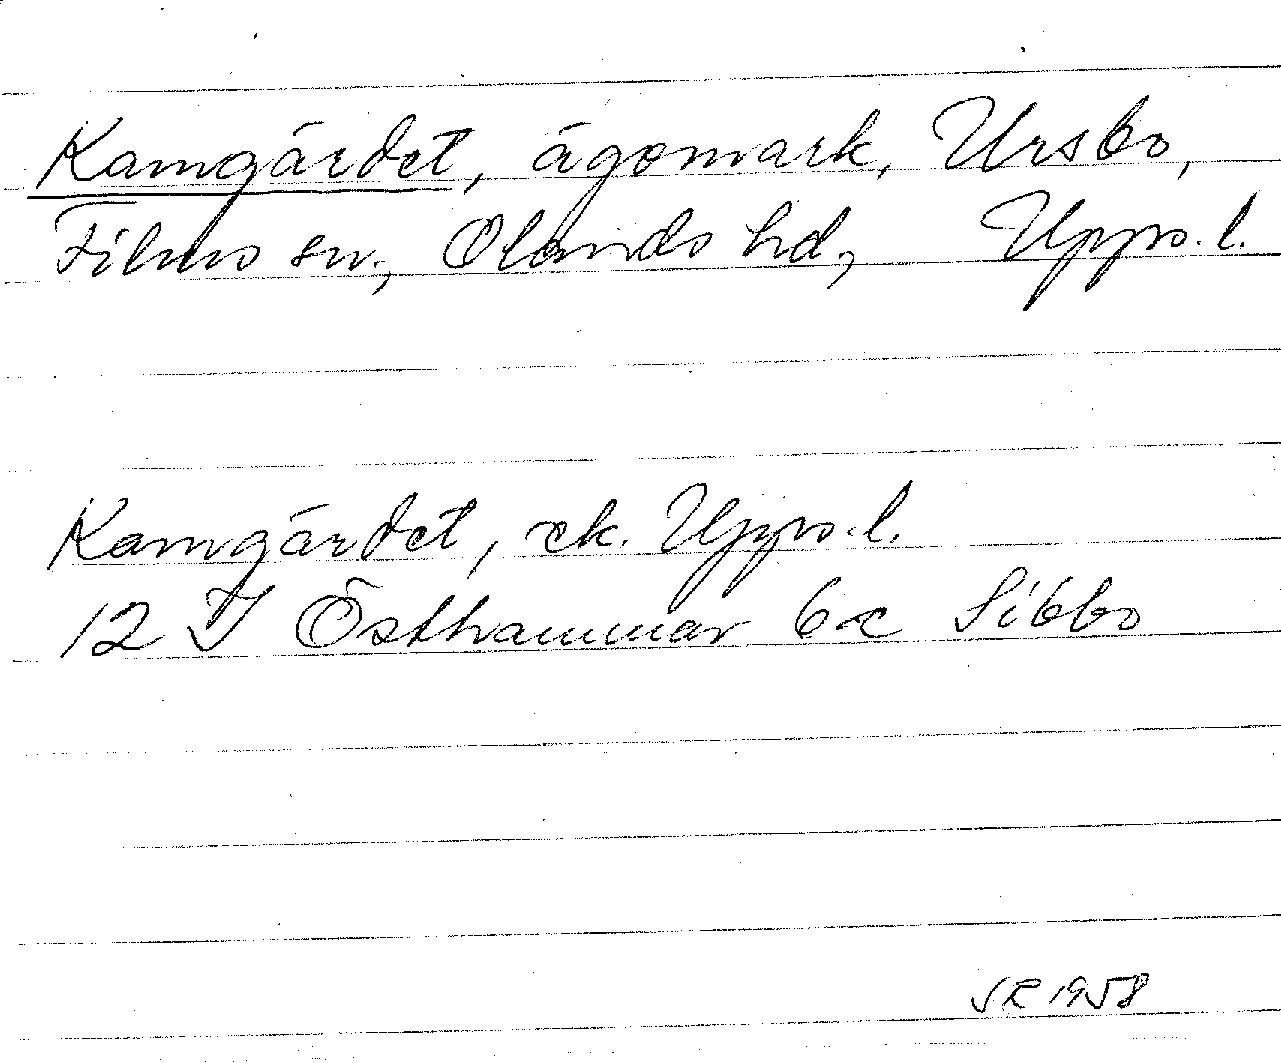 Kamgärdet, ägomark, Ursbo,
Films sn., Olands hd, Upps. l.
Kamgärdet, ek. Upps. l.
12 I Östhammar 6c Sibbo
SR 1958